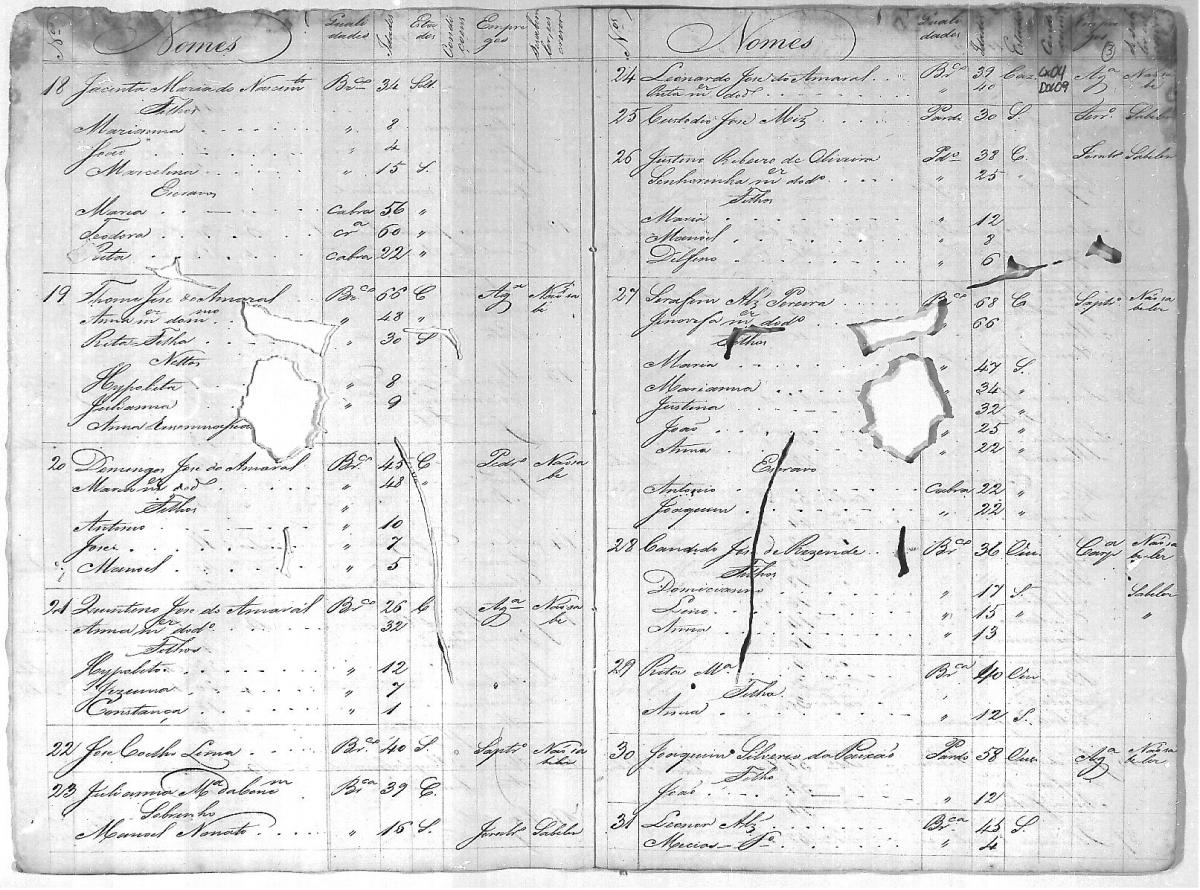 Nos Nomes Quali dades Idades Esta dos Condi coens Empre gos
18 Jacinta Maria do Nascimto Brca 34 Solt.
Filhos
Marianna " 8
João " 4
Marcelina " 15 S.
Escravos
Maria cabra 56 "
Teodora cra 60 "
Rita cabra 22 "
19 Thome Jose do Amaral Brco 66 C Aga Não sa be
Anna mer do mmo " 48 "
Rita Filha " 30 S
Nettos
Hypolita " 8
Julianna " 9
Anna
20 Domingos Jose do Amaral Brco 45 C Pedro Não sa be
Maria mer dodo " 48 "
Filhos "
Antonio " 10
Jose " 7
Manoel " 5
21 Quintino Jose do Amaral Brco 26 C Aga Não sa be
Anna mer dodo 32
Filhos
Hypolito " 12
" 7
Constança " 1
22 Jose Coelho Lima Brco 40 S. Sapto Não sa be ler
23 Julianna Ma Brca 39 C.
Sobrinho
Manoel Nonato " 16 S. Jornalo Sabe ler
Nos Nomes Quali dades Idades Estados
3
24 Leonardo Jose do Amaral Brco 39 Caz. Aga Não sa be
Rita mer dodo " 40
Cx04
Dc09
25 Custodio Jose Miz Pardo 30 S. Ferro Sabe ler
26 Justino Ribeiro de Oliveira Pdo 38 C. Jornalo Sabe ler
Senhorinha mer dodo " 25 "
Filhos
Maria " 12
Manoel " 8
Delfino " 6
27 Serafim Alz Pereira Brco 68 C Sapto Não sa be ler
Jenovefa mer dodo 66
Filhos
Maria " 47 S.
Marianna 34 "
Justina 32 "
João 25 "
Anna " 22 "
Escravo
Antonio Cabra 22 "
Joaquim " 22 "
28 Candido Jose de Rezende Brco 36 Viu Carpa Não sa be ler
Filhos
Domicianno " 17 S Sabe ler
" 15 " "
Anna " 13
29 Rita Ma Brca 40 Viu
Filha
Anna " 12 S.
30 Joaquim Silverio da Paixão Pardo 58 Viu Aga Não sa be ler
Filho
João " 12
31 Leonor Alz Brca 45 S.
" 4